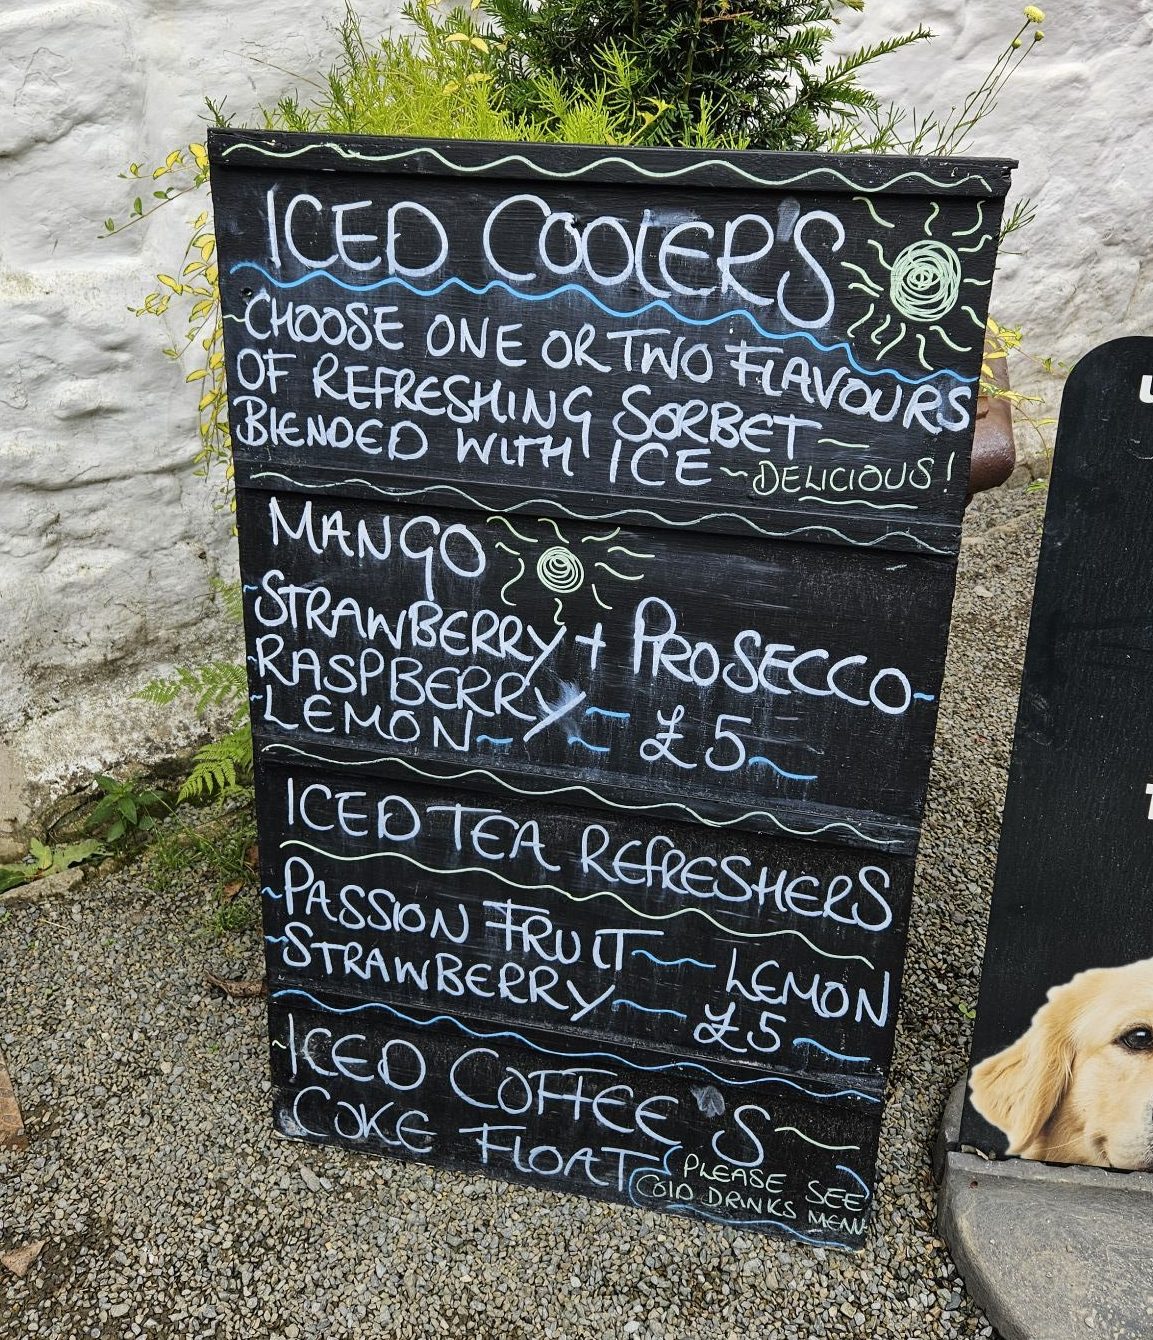 ICED COOLER'S
CHOOSE ONE OR TWO FLAVOURS
OF REFRESHING SORBET
BLENDED WITH ICE ~ DELICIOUS!
MANGO
STRAWBERRY + PROSECCO
RASPBERRY
LEMON £5
ICED TEA REFRESHERS
PASSION FRUIT LEMON
STRAWBERRY £5
ICED COFFEE'S
COKE FLOAT
PLEASE SEE
COLD DRINKS MENU